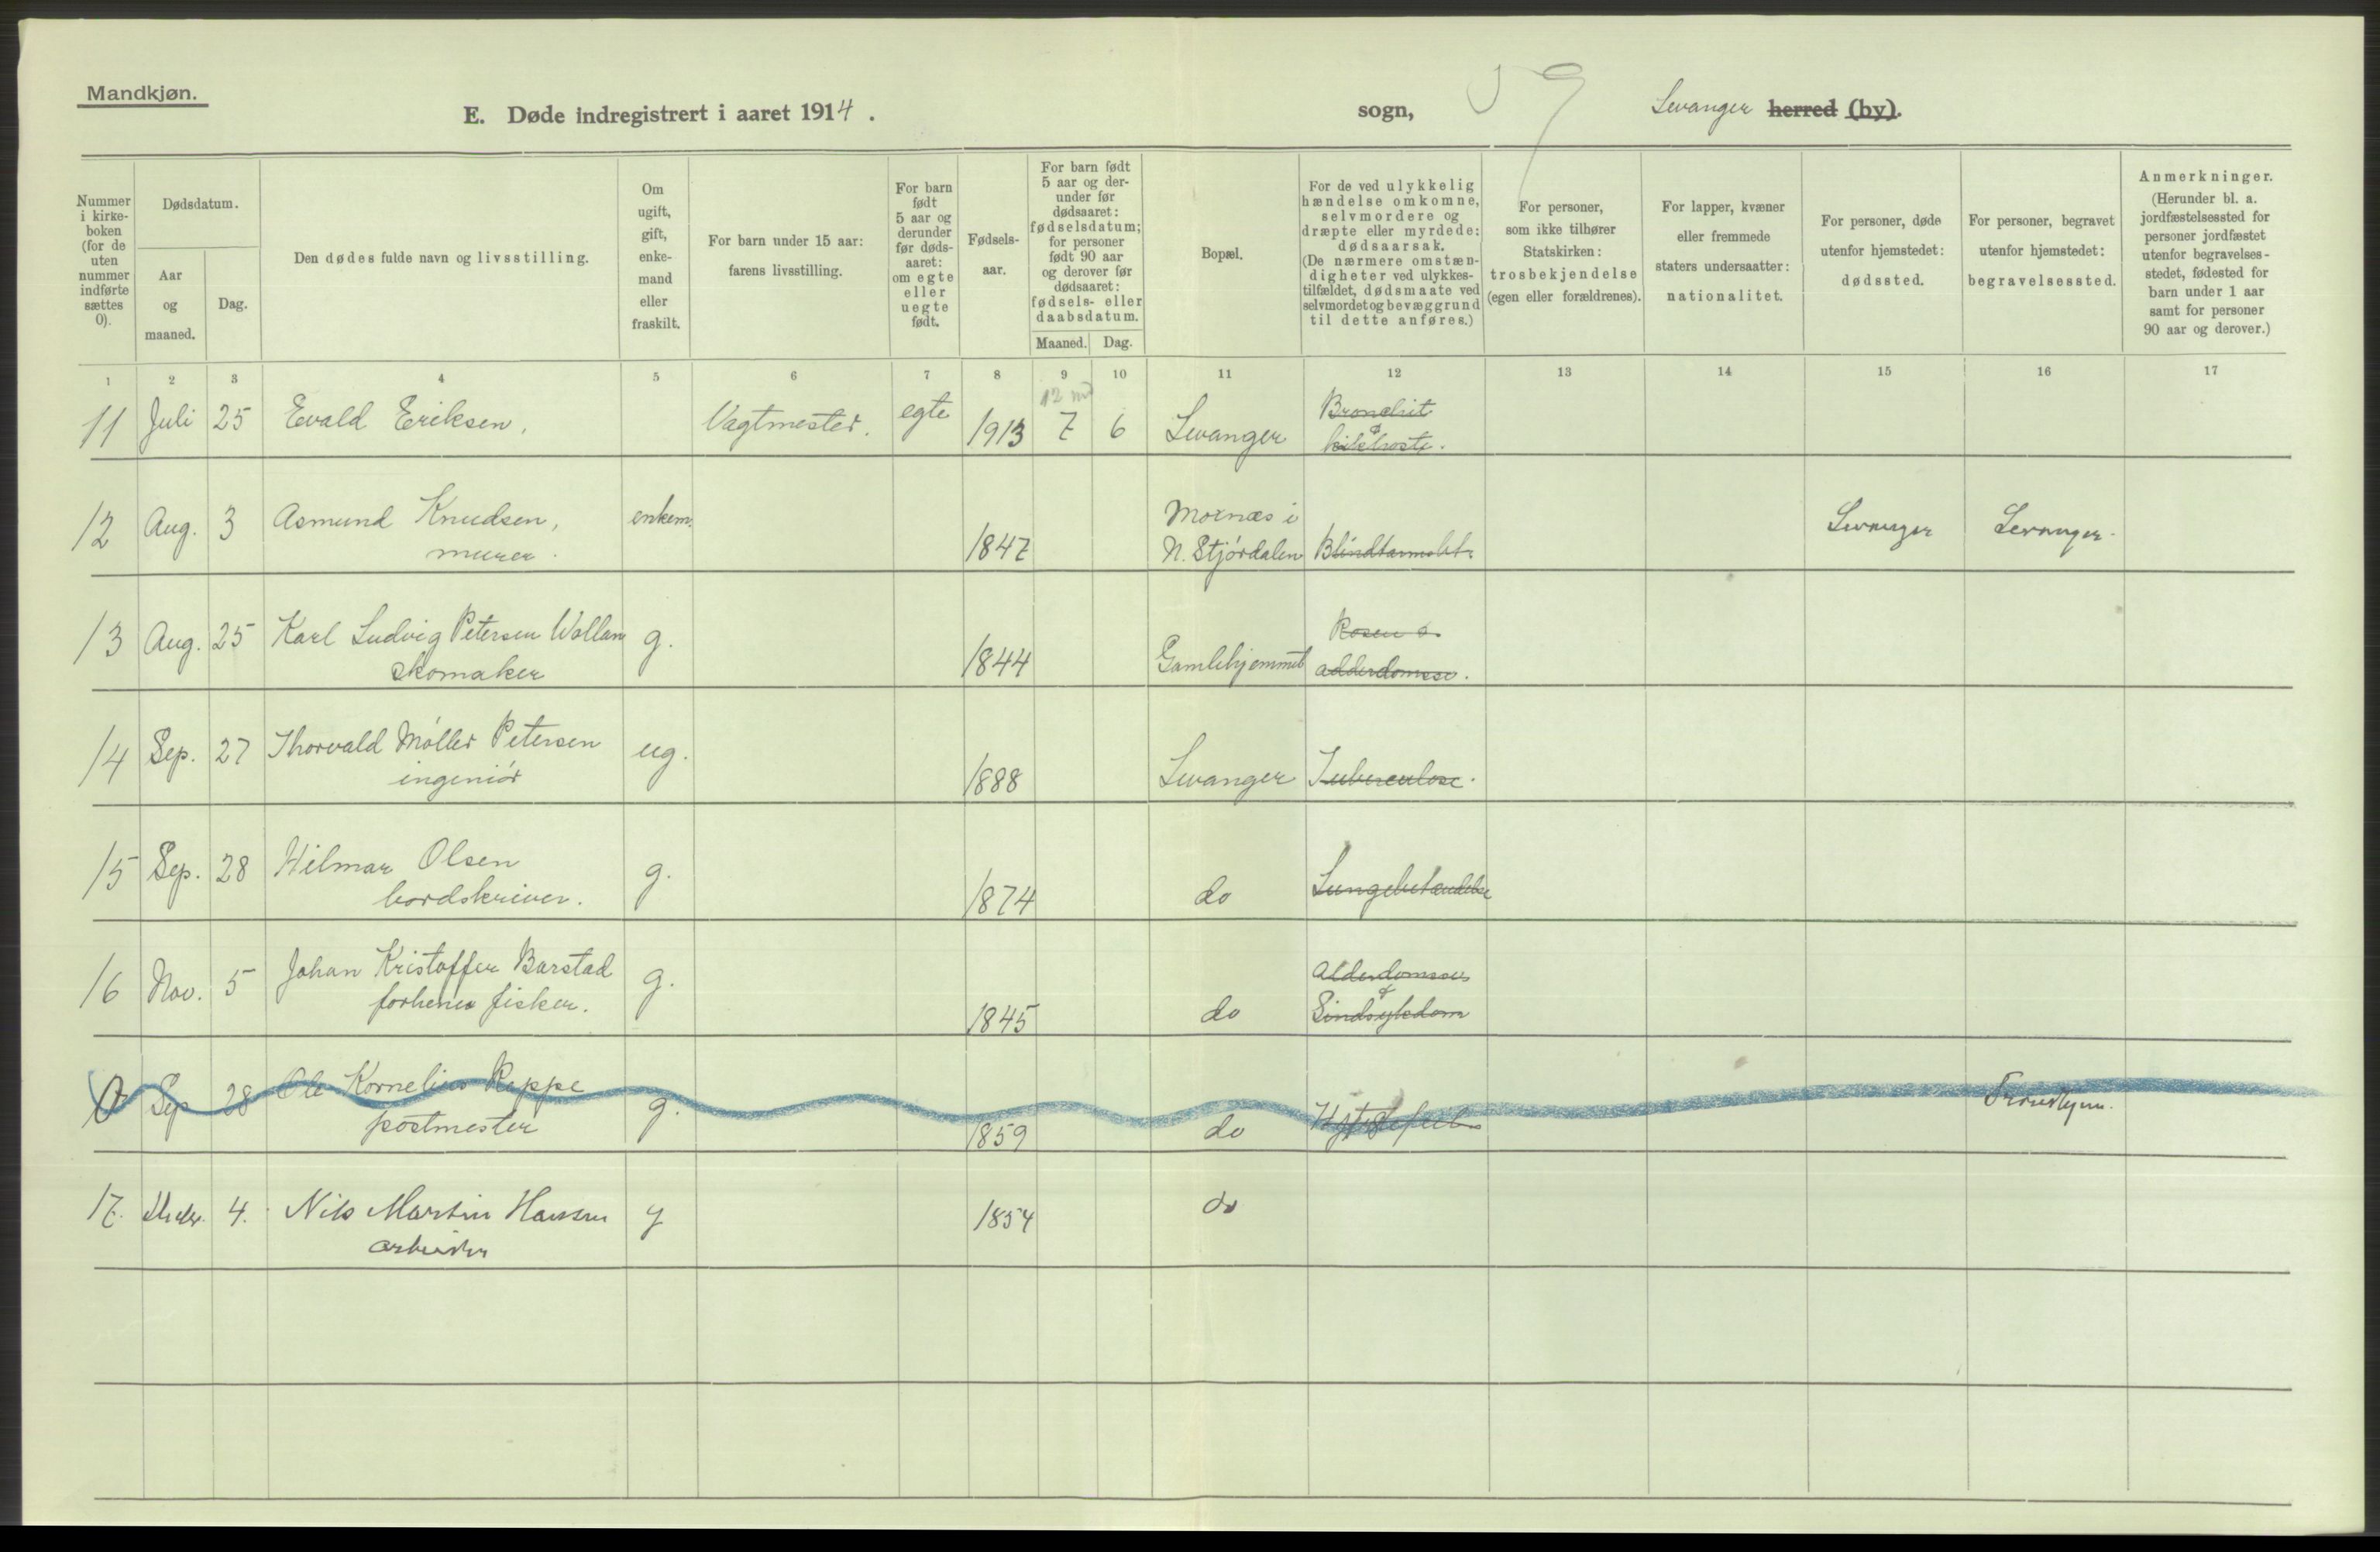 Mandkjøn.
E. Døde indregistrert i aaret 1914.
sogn,
Levanger herred (by).
Nummer i kirke- boken (for de uten nummer indførte sættes 0).
Dødsdatum.
Aar og maaned.
Dag.
Den dødes fulde navn og livsstilling.
Om ugift, gift, enke- mand eller fraskilt.
For barn under 15 aar: farens livsstilling.
For barn født 5 aar og derunder før døds- aaret: om egte eller uegte født.
Fødsels- aar.
For barn født 5 aar og der- under før dødsaaret: fødselsdatum; for personer født 90 aar og derover før dødsaaret: fødsels- eller daabsdatum.
Maaned.
Dag.
Bopæl.
For de ved ulykkelig hændelse omkomne, selvmordere og dræpte eller myrdede: dødsaarsak. (De nærmere omstæn- digheter ved ulykkes- tilfældet, dødsmaate ved selvmordet og bevæggrund til dette anføres.)
For personer, som ikke tilhører Statskirken: trosbekjendelse (egen eller forældrenes).
For lapper, kvæner eller fremmede staters undersaatter: nationalitet.
For personer, døde utenfor hjemstedet: dødssted.
For personer, begravet utenfor hjemstedet: begravelsessted.
Anmerkninger. (Herunder bl. a. jordfæstelsessted for personer jordfæstet utenfor begravelses- stedet, fødested for barn under 1 aar samt for personer 90 aar og derover.)
1 2 3 4 5 6 7 8 9 10 11 12 13 14 15 16 17
11 Juli 25 Evald Eriksen, Vagtmester. egte 1913 12 md 7 6 Levanger Bronchit & kikhoste.
12 Aug. 3 Asmund Knudsen, enkem. 1847 Moxnæs i N. Stjórdalen Blindtarmsbet. Levanger Levanger.
murer.
13 Aug. 25 Karl Ludvig Petersen Wollan g. 1844 Gamlehjemmet Rosen o. adderdomssv.
skomaker
14 Sep. 27 Thorvald Møller Petersen ug. 1888 Levanger Tuberculose.
ingeniór
15 Sep. 28 Hilmar Olsen g. 1874 do Lungebetændelse
bordskriver.
16 Nov. 5 Johan Kristoffer Barstad g. 1845 do Alderdomssv & Sindsykdom
forhenv fisker.
0 Sep 28 Ole Kornelius Reppe g. 1859 do Trondhjem.
postmester
17. 4. Nils Martin Hansen g 1854 do
arbeider